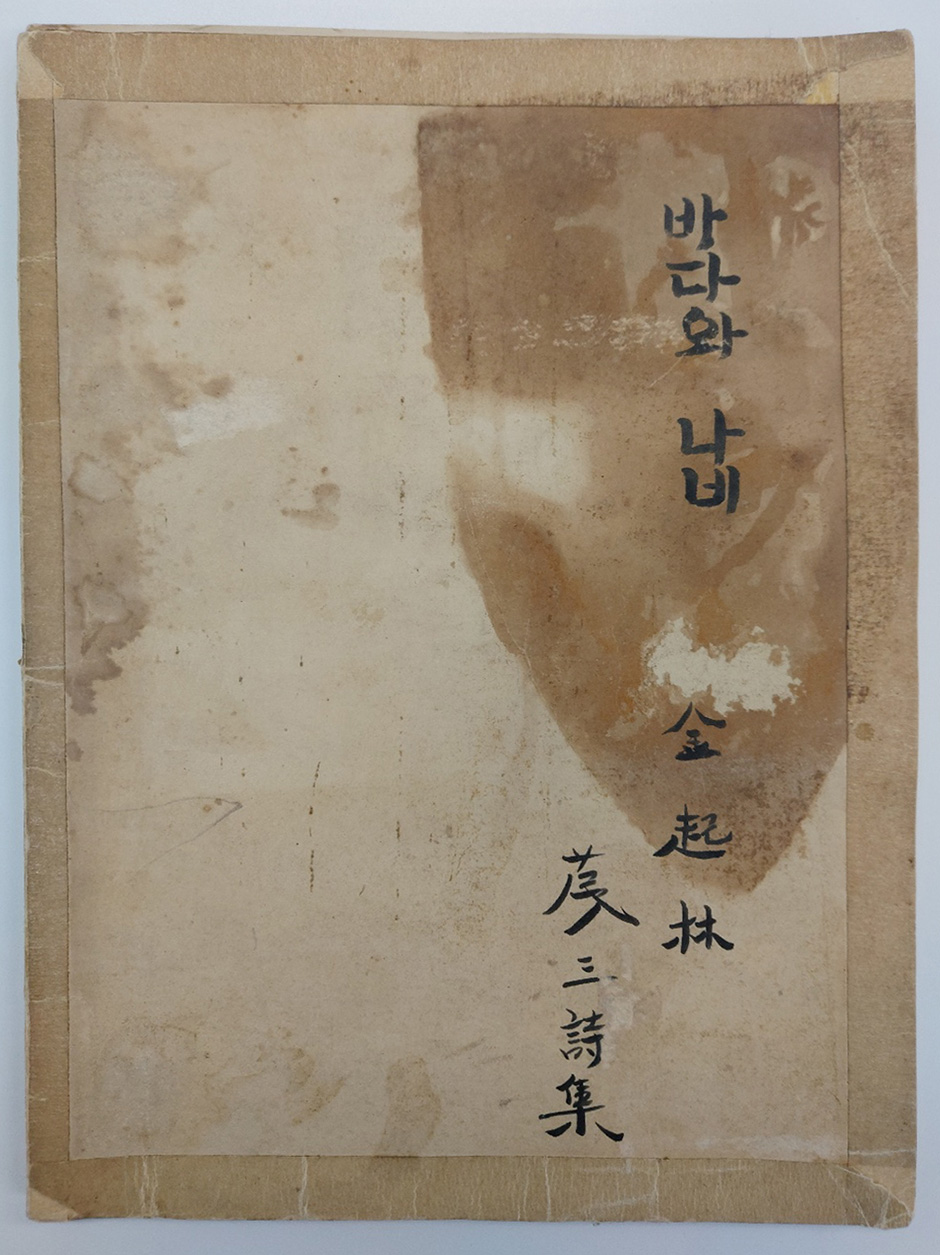 바다와 나비
金起林
第三詩集